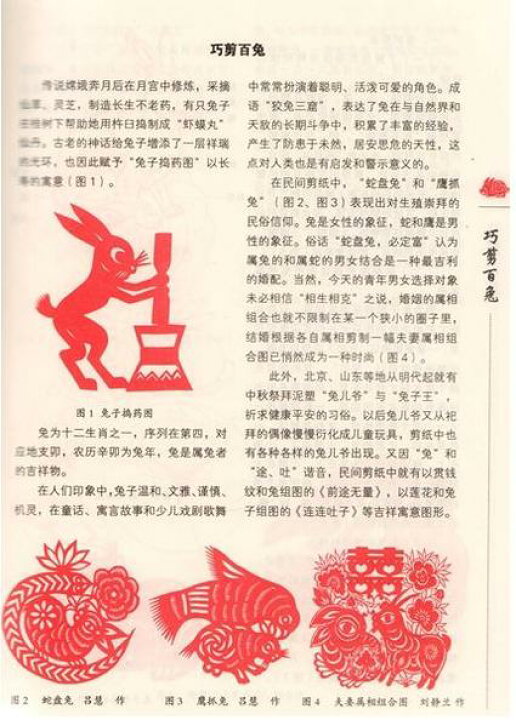 巧剪百兔
传说嫦娥奔月后在月宫中修炼，采摘
仙草、灵芝，制造长生不老药，有只兔子
在桂树下帮助她用杵臼捣制成“虾蟆丸”
仙丹。古老的神话给兔子增添了一层祥瑞
的光环，也因此赋予“兔子捣药图”以长
寿的寓意（图1）。
图1 兔子捣药图
兔为十二生肖之一，序列在第四，对
应地支卯，农历辛卯为兔年，兔是属兔者
的吉祥物。
在人们印象中，兔子温和、文雅、谨慎、
机灵，在童话、寓言故事和少儿戏剧歌舞
中常常扮演着聪明、活泼可爱的角色。成
语“狡兔三窟”，表达了兔在与自然界和
天敌的长期斗争中，积累了丰富的经验，
产生了防患于未然，居安思危的天性，这
点对人类也是有启发和警示意义的。
在民间剪纸中，“蛇盘兔”和“鹰抓
兔”（图2、图3）表现出对生殖崇拜的
民俗信仰。兔是女性的象征，蛇和鹰是男
性的象征。俗话“蛇盘兔，必定富”认为
属兔的和属蛇的男女结合是一种最吉利
的婚配。当然，今天的青年男女选择对象
未必相信“相生相克”之说，婚姻的属相
组合也就不限制在某一个狭小的圈子里，
结婚根据各自属相剪制一幅夫妻属相组
合图已悄然成为一种时尚（图4）。
此外，北京、山东等地从明代起就有
中秋祭拜泥塑“兔儿爷”与“兔子王”，
祈求健康平安的习俗。以后兔儿爷又从祀
拜的偶像慢慢衍化成儿童玩具，剪纸中也
有各种各样的兔儿爷出现。又因“兔”和
“途、吐”谐音，民间剪纸中就有以贯钱
纹和兔组图的《前途无量》，以莲花和兔
子组图的《连连吐子》等吉祥寓意图形。
巧剪百兔
图2 蛇盘兔 吕慧 作
图3 鹰抓兔 吕慧 作
图4 夫妻属相组合图 刘静兰 作